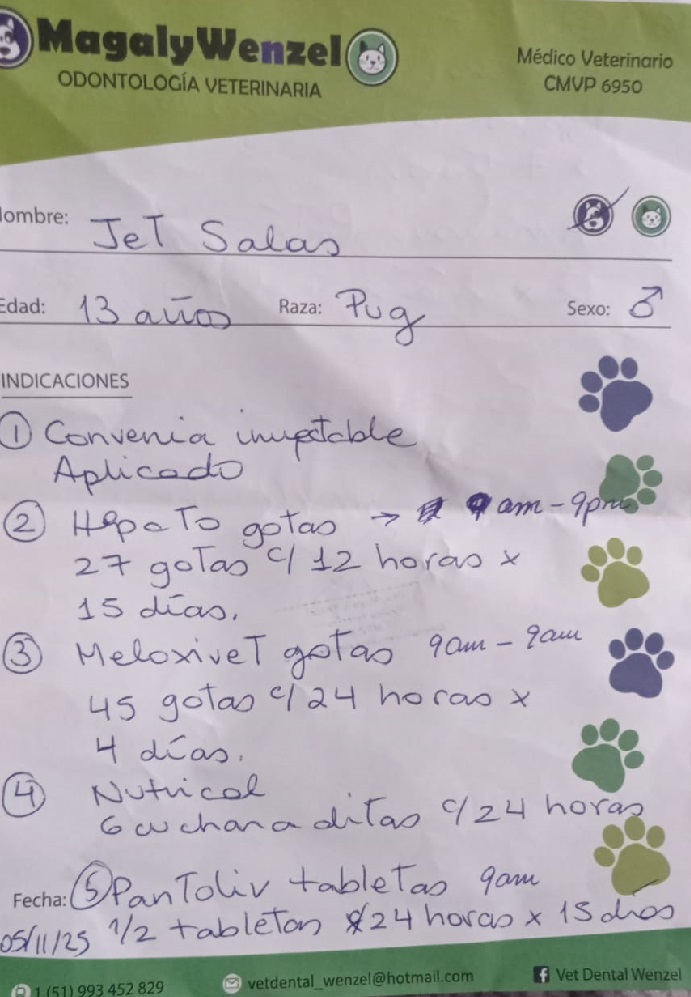 MagalyWenzel
ODONTOLOGÍA VETERINARIA
Médico Veterinario
CMVP 6950
Nombre: JeT Salas
Edad: 13 años Raza: Pug Sexo: ♂
INDICACIONES
① Convenia inyectable
Aplicado
② HepaTo gotas → 9am - 9pm
27 goTas c/ 12 horas x
15 días.
③ MeloxiveT gotas 9am - 9am
45 gotas c/24 horas x
4 días.
④ Nutrical
6 cucharaditas c/24 horas
⑤ PanToliv tableTas 9am
Fecha: 05/11/25 1/2 tabletas c/24 horas x 15 días
(51) 993 452 829
vetdental_wenzel@hotmail.com
Vet Dental Wenzel